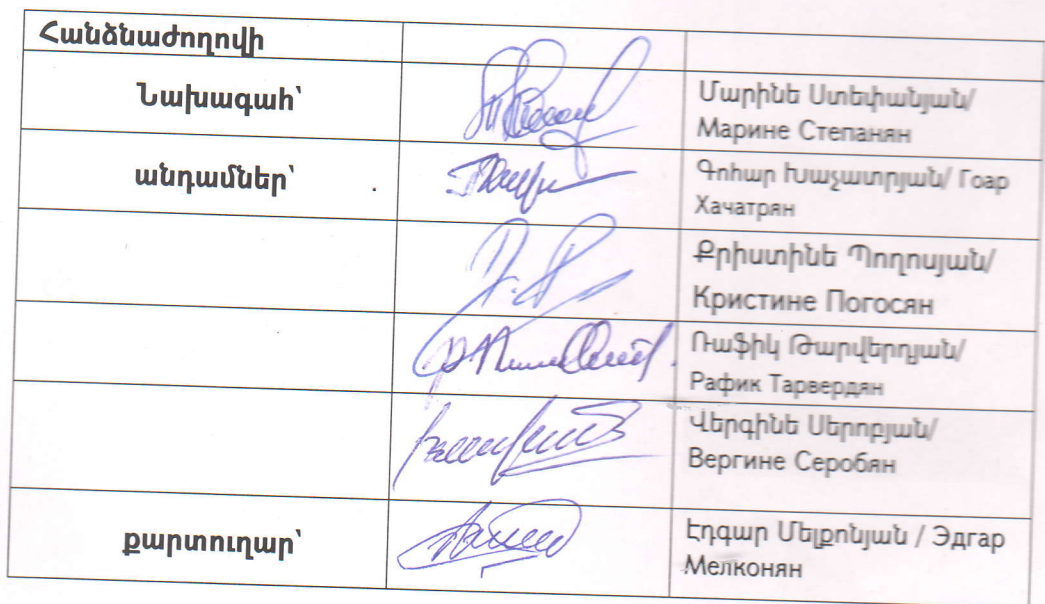 Հանձնաժողովի
Նախագահ՝
Մարինե Ստեփանյան/
Марине Степанян
անդամներ՝
Գոհար Խաչատրյան/ Гоар
Хачатрян
Քրիստինե Պողոսյան/
Кристине Погосян
Ռաֆիկ Թարվերդյան/
Рафик Тарвердян
Վերգինե Սերոբյան/
Вергине Серобян
քարտուղար՝
Էդգար Մելքոնյան / Эдгар
Мелконян